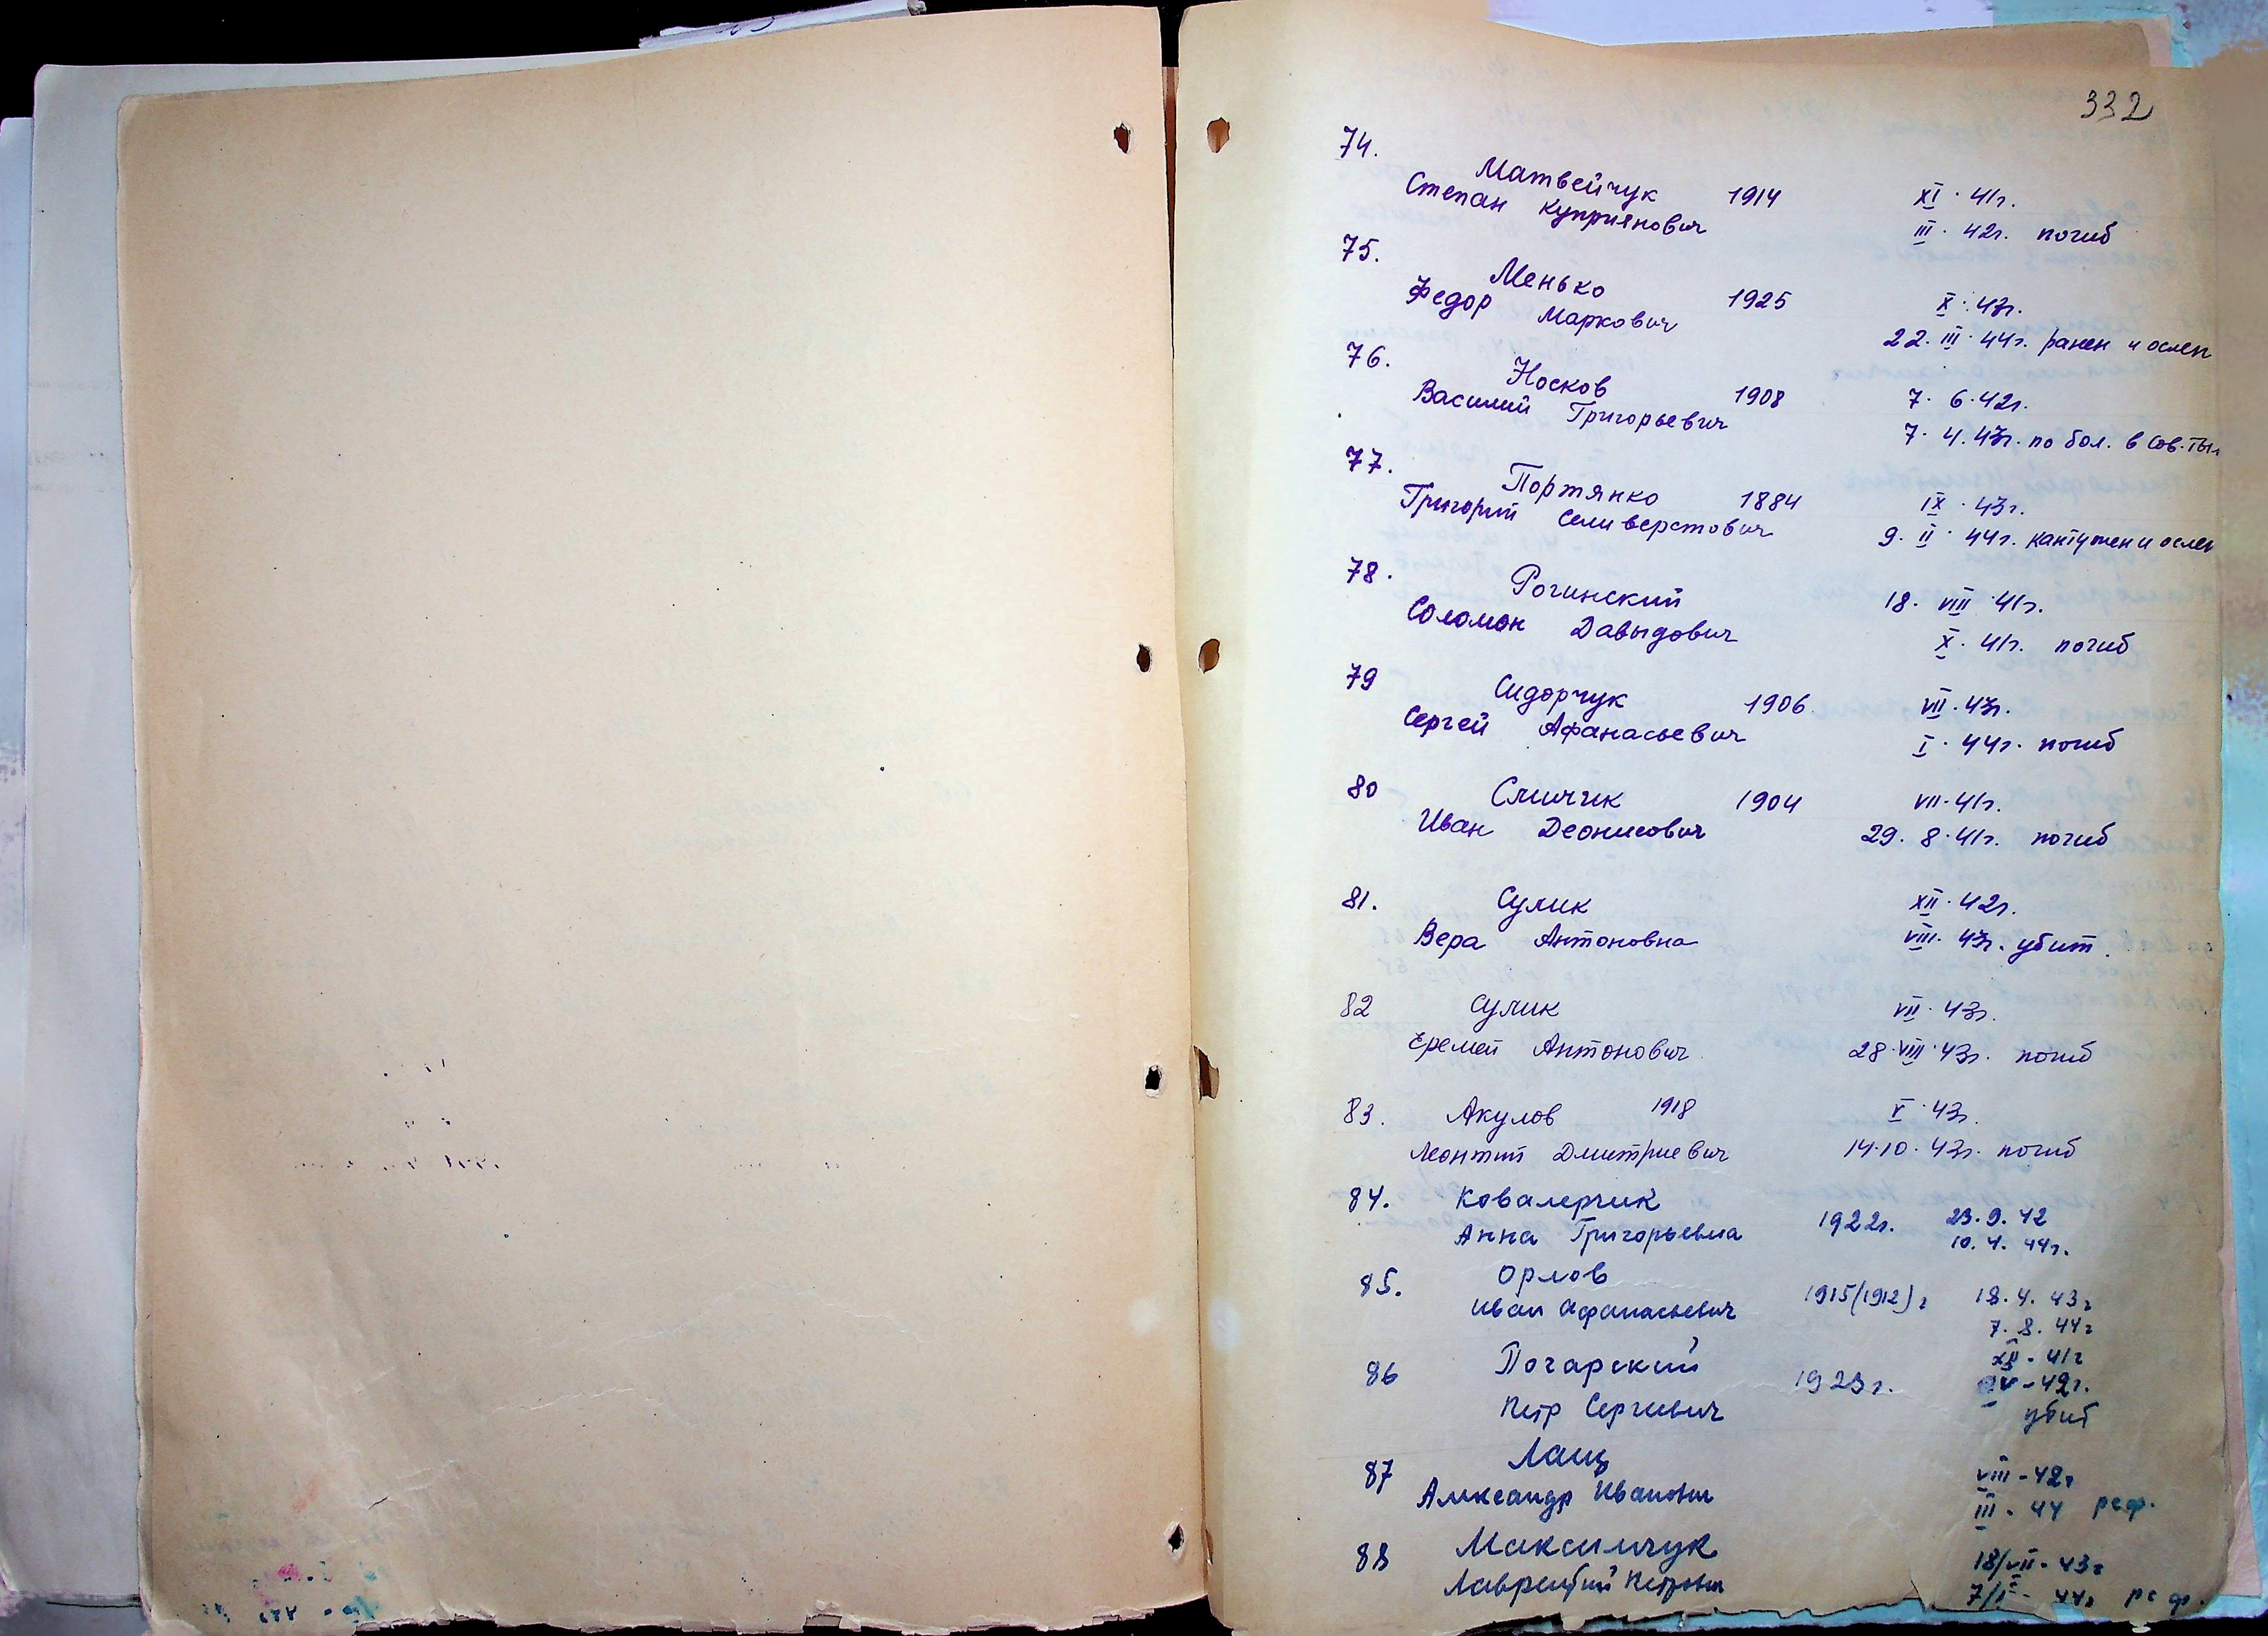 332
74.
Матвейчук 1914 XI · 41г.
Степан Куприянович III · 42г. погиб
75.
Менько 1925 X · 43г.
Федор Маркович 22. III · 44г. ранен и ослеп
76.
Носков 1908 7 · 6 · 42г.
Василий Григорьевич 7 · 4. 43г. по бол. в сов. тыл
77.
Портянко 1884 IX · 43г.
Григорий Селиверстович 9. II · 44г. кантужен и ослеп
78.
Рогинский 18. VIII · 41г.
Соломон Давыдович X · 41г. погиб
79 Сидорчук 1906 VII · 43г.
Сергей Афанасьевич I · 44г. погиб
80 Слинчик 1904 VII · 41г.
Иван Деонисович 29. 8 · 41г. погиб
81. Сулик XII · 42г.
Вера Антоновна VIII. 43г. убит.
82 Сулик VII · 43г.
Еремей Антонович 28 · VIII · 43г. погиб
83. Акулов 1918 V · 43г.
Леонтий Дмитриевич 14 · 10 · 43г. погиб
84. Ковалерчик
Анна Григорьевна 1922г. 23. 9. 42
10. 4. 44г.
85. Орлов
Иван Афанасьевич 1915(1912)г 18. 4. 43г
7. 8. 44г
86 Погарский XII - 41г
Петр Сергеевич 1923г. IV - 42г.
убит
87 Лащ VIII - 42г
Александр Иванович III - 44 рсф.
88 Максимчук 18/VII - 43г
Лаврентий Петрович 7/I - 44г рсф.